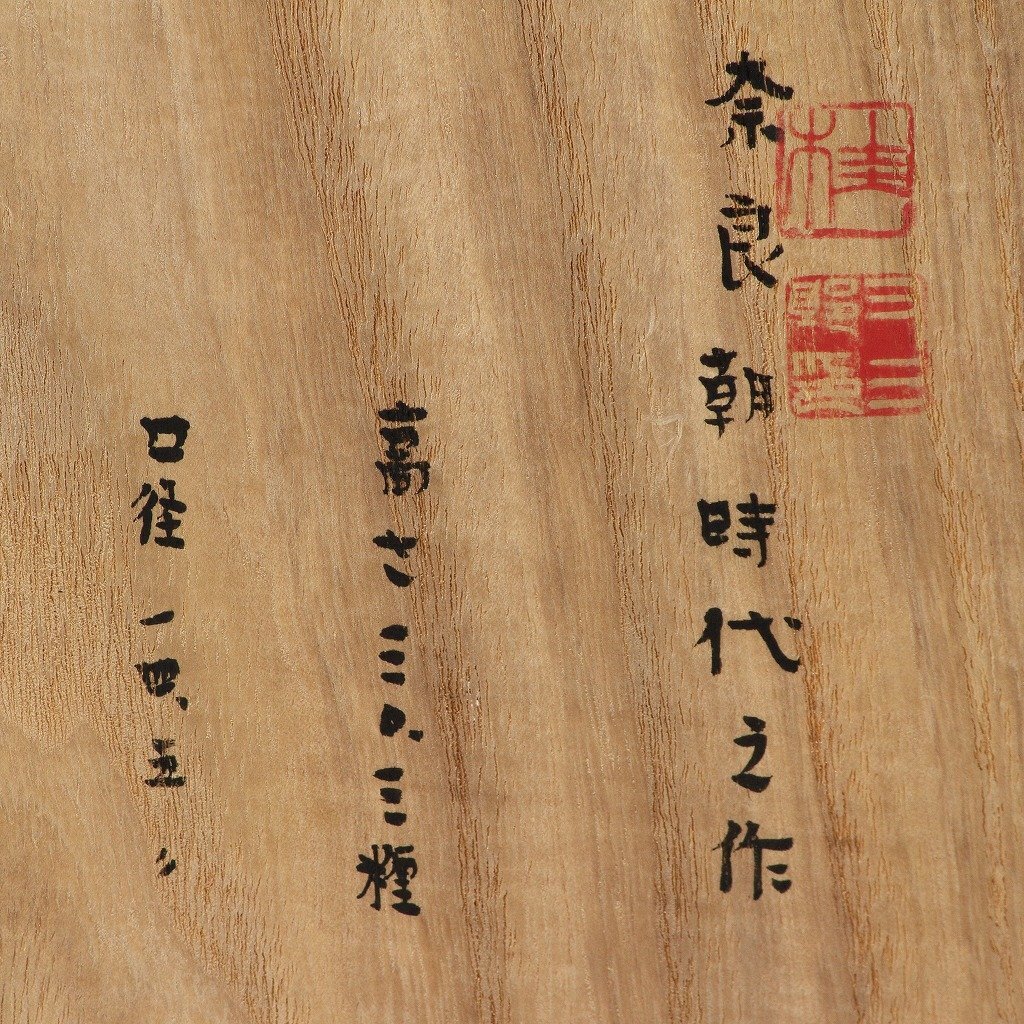 桂
奈良朝時代之作
高さ三〇、三糎
口径一四、五〃